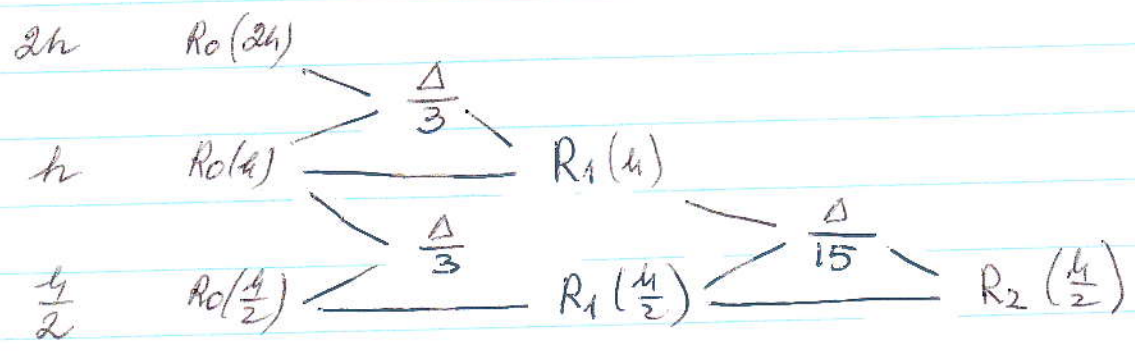 2h R0(2h)
Δ/3
h R0(h) R1(h)
Δ/3 Δ/15
h/2 R0(h/2) R1(h/2) R2(h/2)